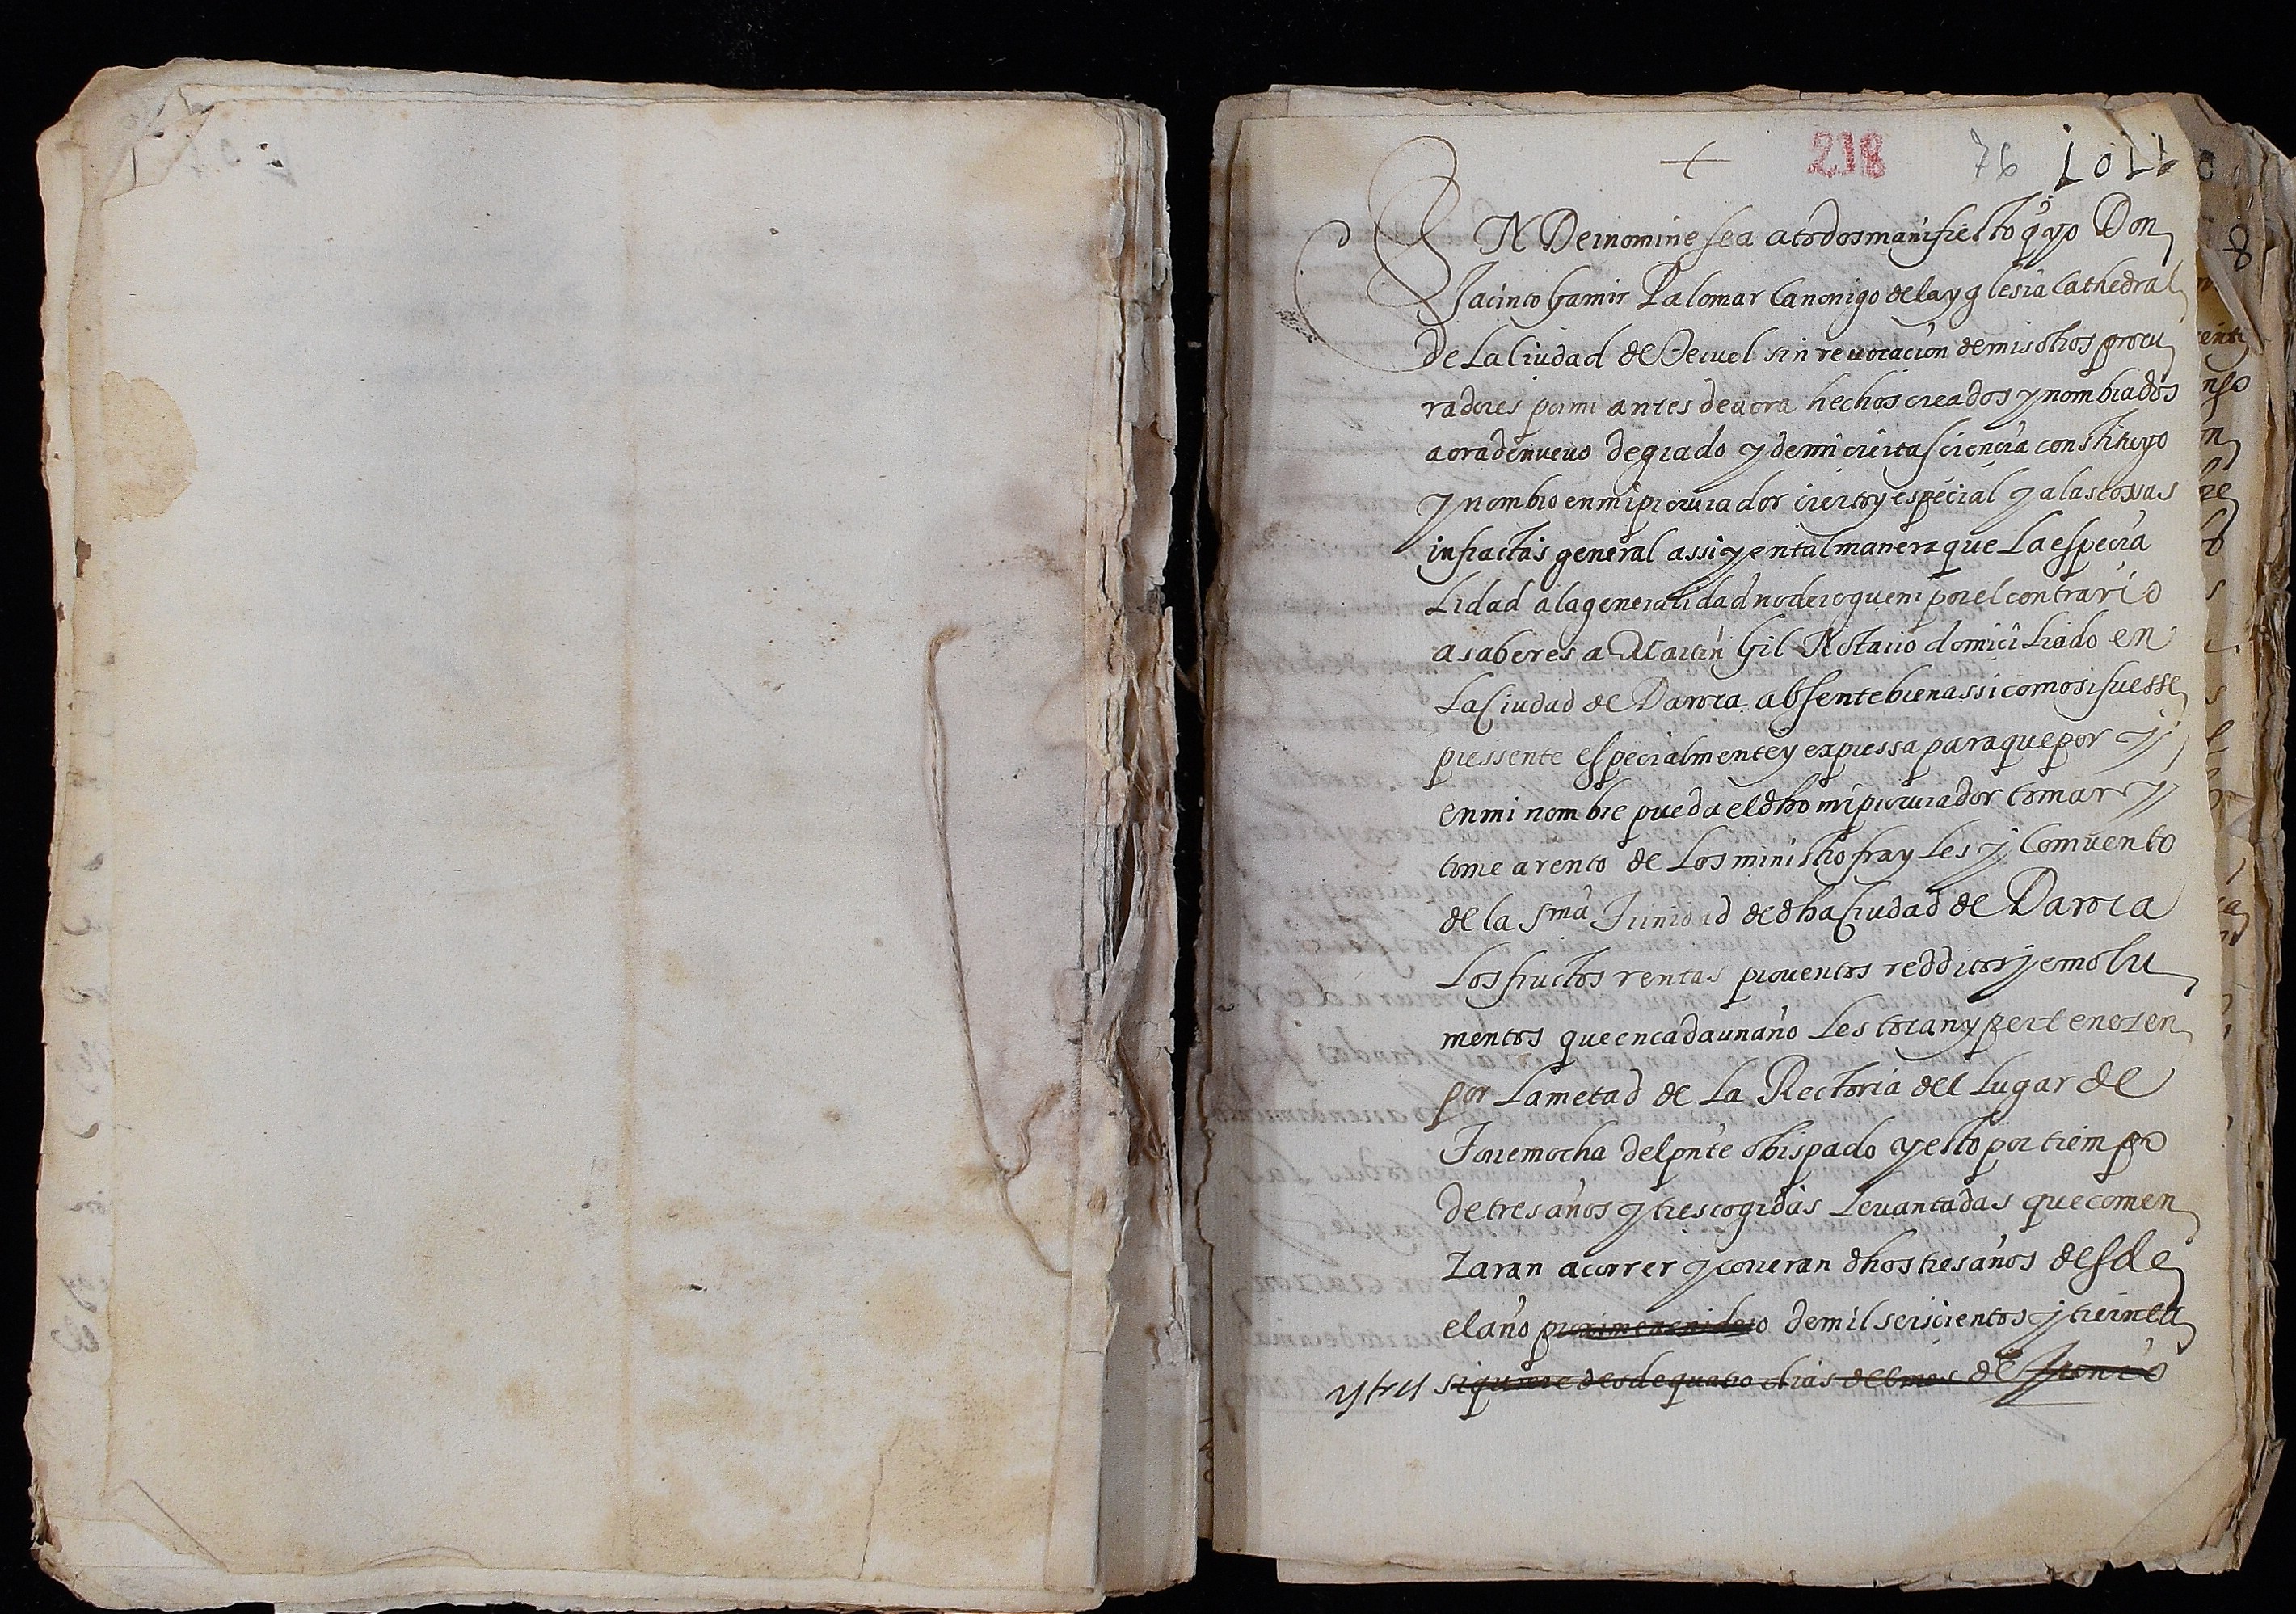 + 218 76 1011
IN Dei nomine sea a todos manifiesto q̃ yo Don
Jacinto Gamir Palomar Canonigo de la yglesia Cathedral
de La Ciudad de Teruel sin reuocacion de mis otros procu
radores por mi antes de aora hechos creados y nombrados
aora de nueuo de grado y de mi cierta sciencia constituyo
y nombro en mi procurador cierto y especial y a las cossas
infractas general assi y en tal manera que La especia
Lidad a la generalidad no derogue ni por el contrario
a saber es a Martin Gil Notario domiciliado en
La Ciudad de Daroca absente bien assi como si fuesse
pressente especialmente y expressa para que por y
en mi nombre pueda el dho mi procurador tomar y
tome a rento de Los ministro frayles y Comuento
de la Sma Trinidad de dha Ciudad de Daroca
Los fructos rentas prouentos redditos y emolu
mentos que en cada un año Les tocan y pertenezen
por La metad de La Rectoria del Lugar de
Torremocha del pnte obispado y esto por tiempo
de tres años y tres cogidas Leuantadas que comen
zaran a correr y correran dhos tres años desde
el año proximo venidero de mil seiscientos y treinta
y tres siguiente desde quatro dias del mes de Junio